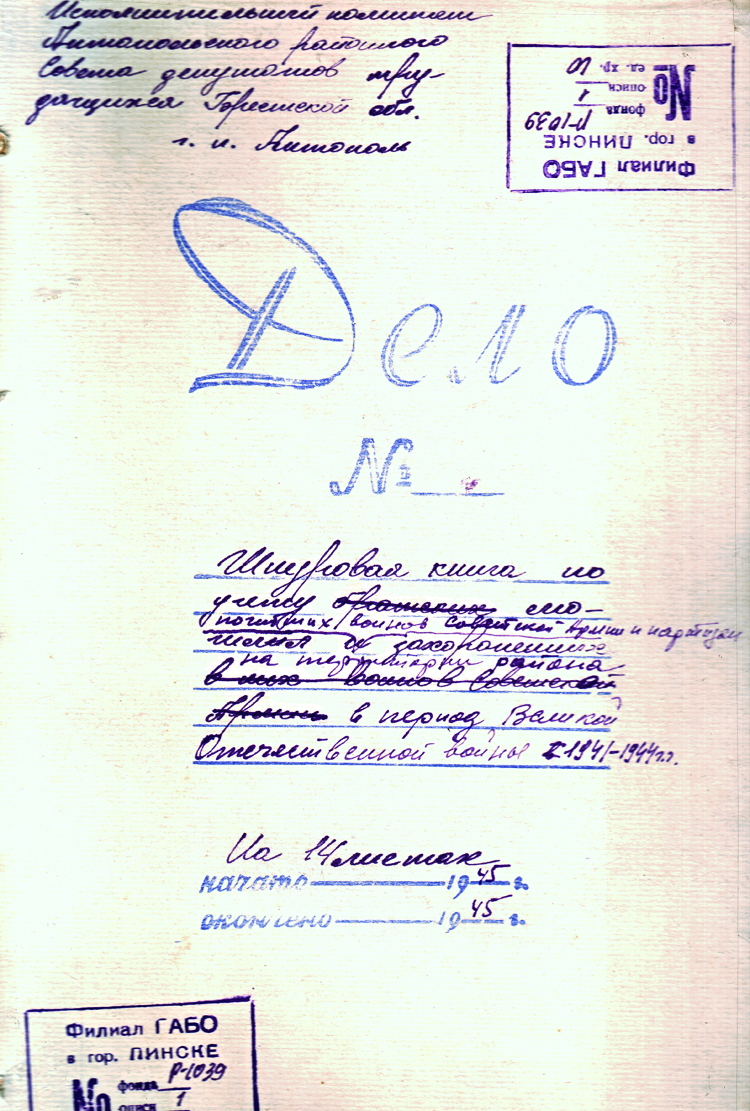 Исполнительный комитет
Антопольского районного
Совета депутатов тру-
дящихся Брестской обл.
г. п. Антополь
Филиал ГАБО
в гор. ПИНСКЕ
№ фонда Р-1039
описи 1
ед. хр. 10
Дело
№
Шнуровая книга по
учету братских мо-
погибших воинов Советской Армии и партизан
гилах и захороненных
на территории района
в них воинов Советской
Армии в период Великой
Отечественной войны 1941-1944 г.г.
На 14 листах
начато 1945 г.
окончено 1945 г.
Филиал ГАБО
в гор. ПИНСКЕ
№ фонда Р-1039
описи 1